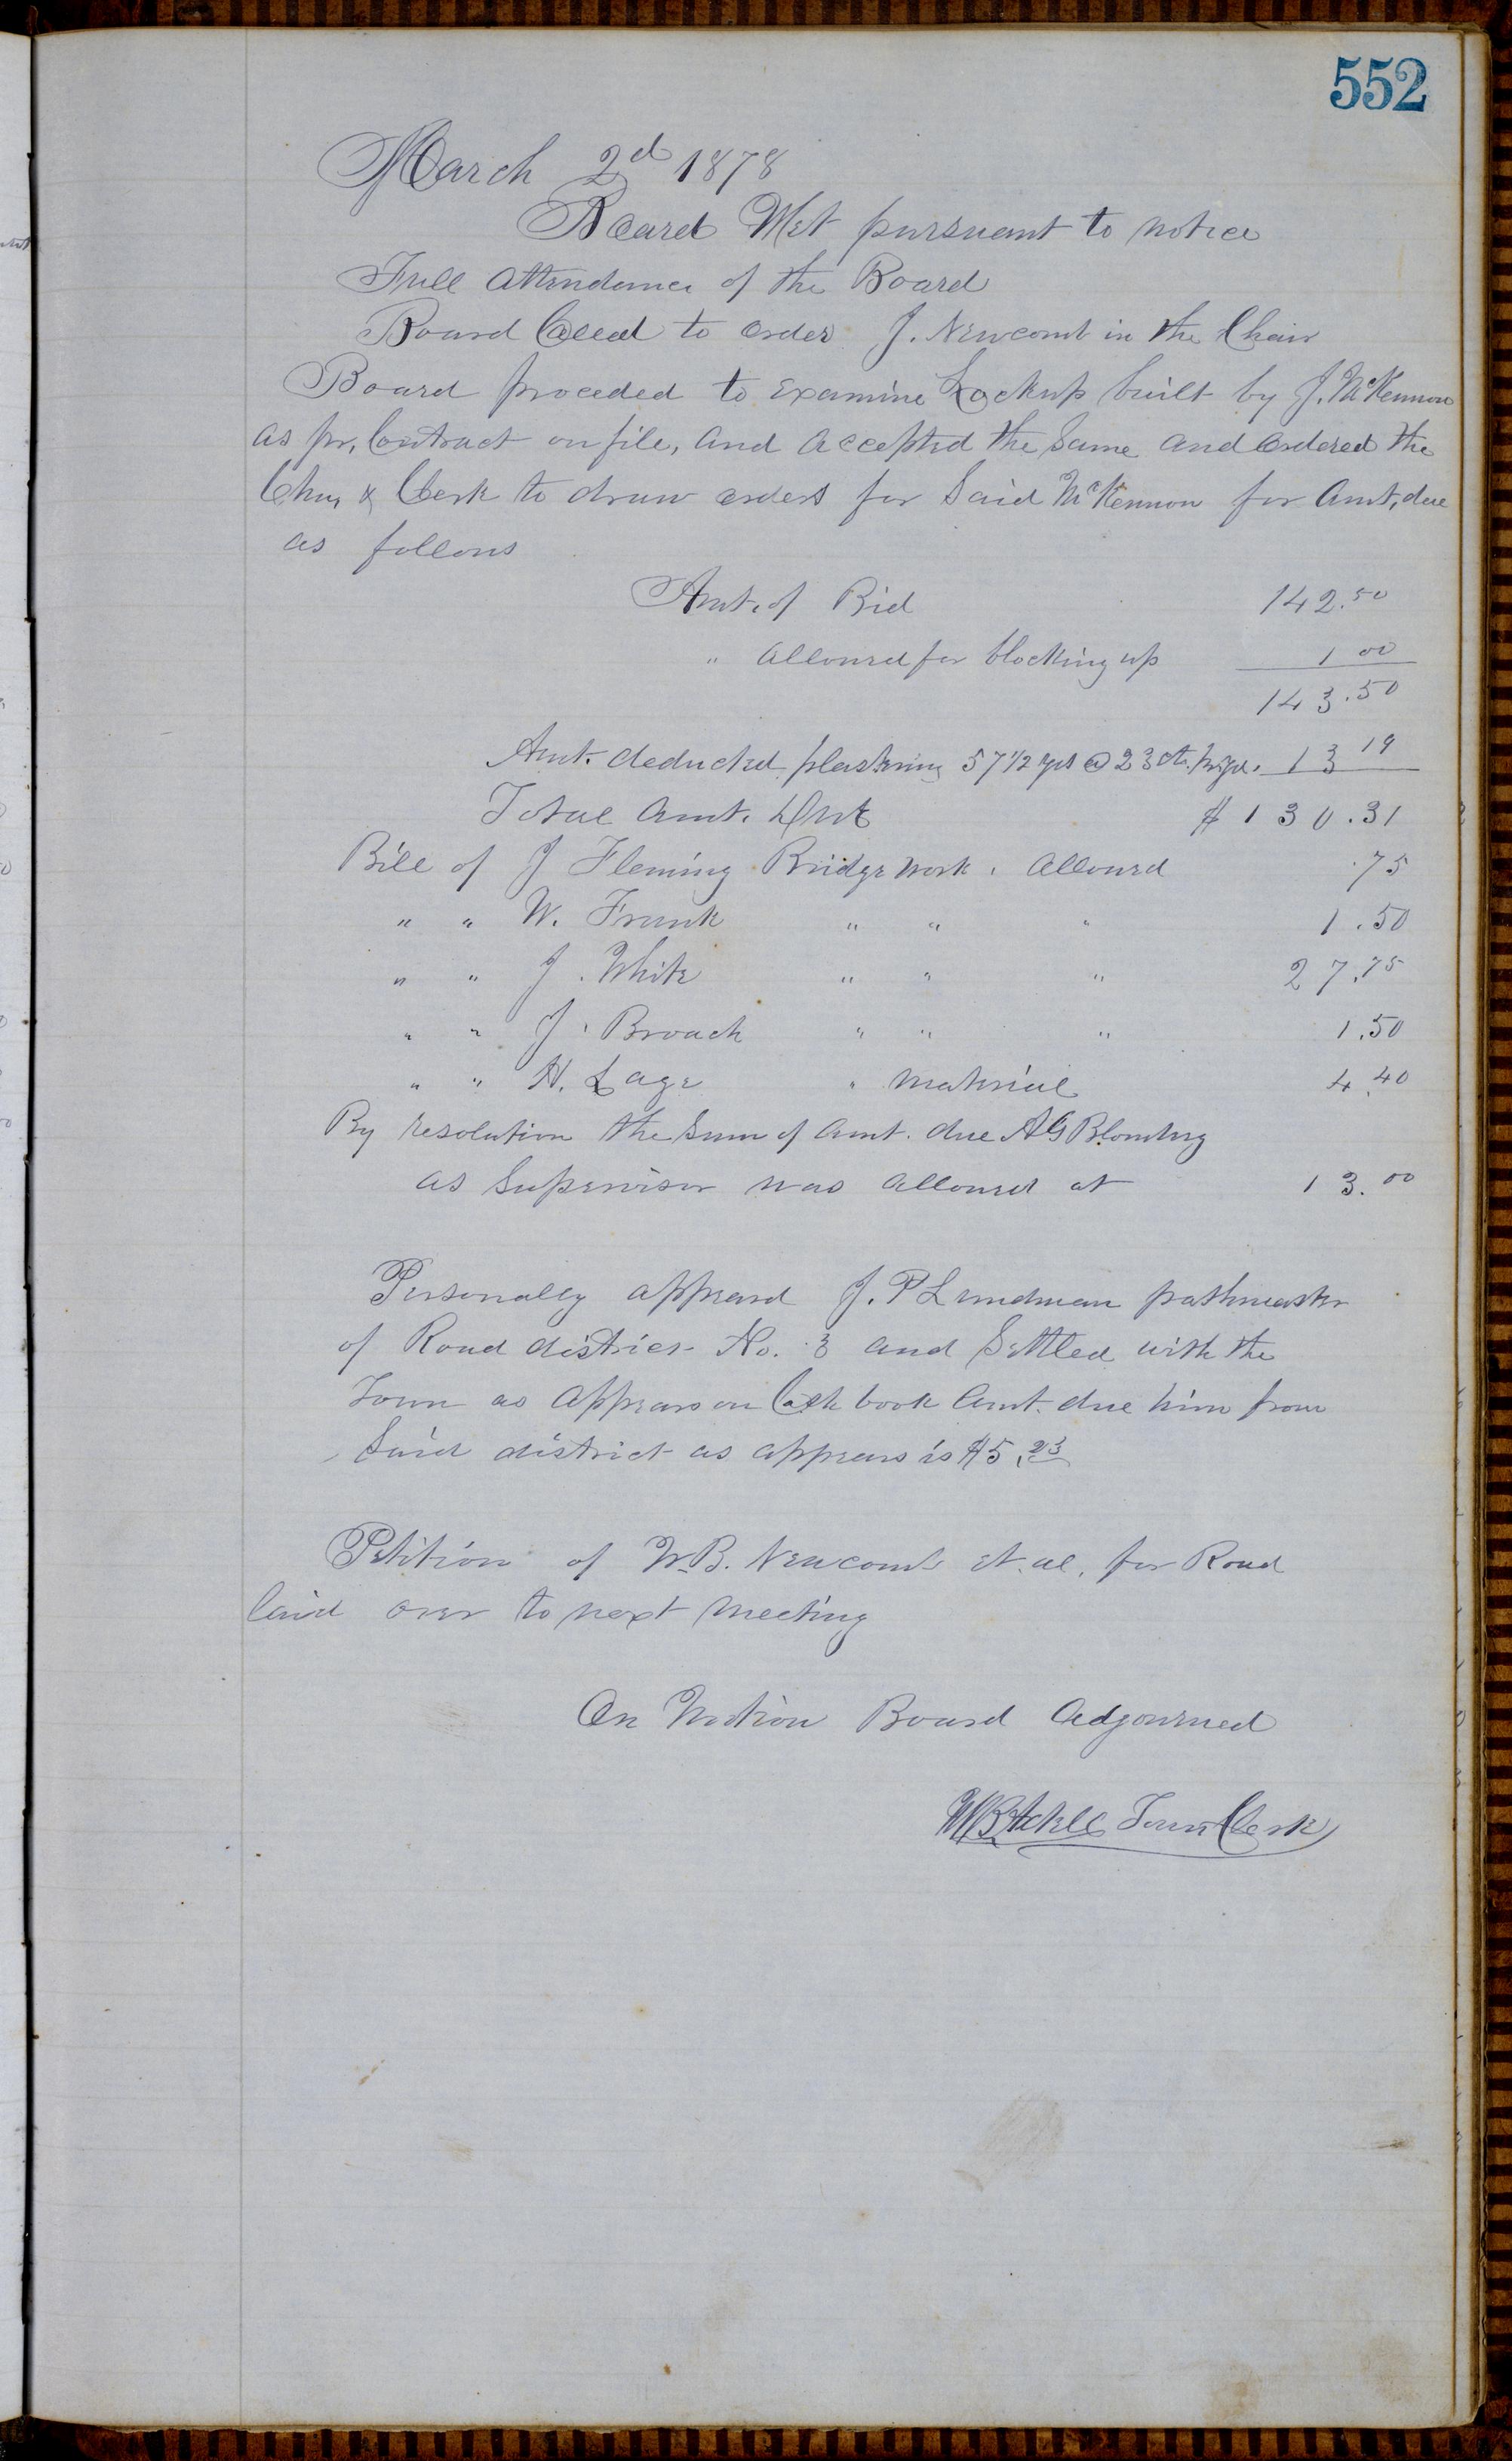 552
March 2d 1878
Board Met pursuant to notice
Full attendance of the Board
Board Called to order J. Newcomb in the Chair
Board proceded to examine Lockup built by J. McKennon
as pr. Contract on file, and accepted the Same and ordered the
Chm, & Clerk to draw orders for Said McKennon for Amt, due
as follows
Amt. of Bid 142.50
" allowed for blocking up 1 00
143.50
Amt. deducted plastering 57 1/2 yds @ 23 cts. pr yd. 13 19
Total amt. Due $130.31
Bill of J Fleming Bridge work. allowed .75
" " W. Frank " " " 1.50
" " J. White " " " 27.75
" " J. Broach " " " 1.50
" " H. Lage " material 4.40
By resolution the Sum of amt. due AG Blomberg
as Supervisor was allowed at 13.00
Personally appeard J. P Lundman pathmaster
of Road district No. 3 and Settled with the
Town as appears on Cash book Amt. due him from
Said district as appears is $5.23
Petition of W. B. Newcomb et. al. for Road
laid over to next meeting
On Motion Board adjourned
Town Clerk